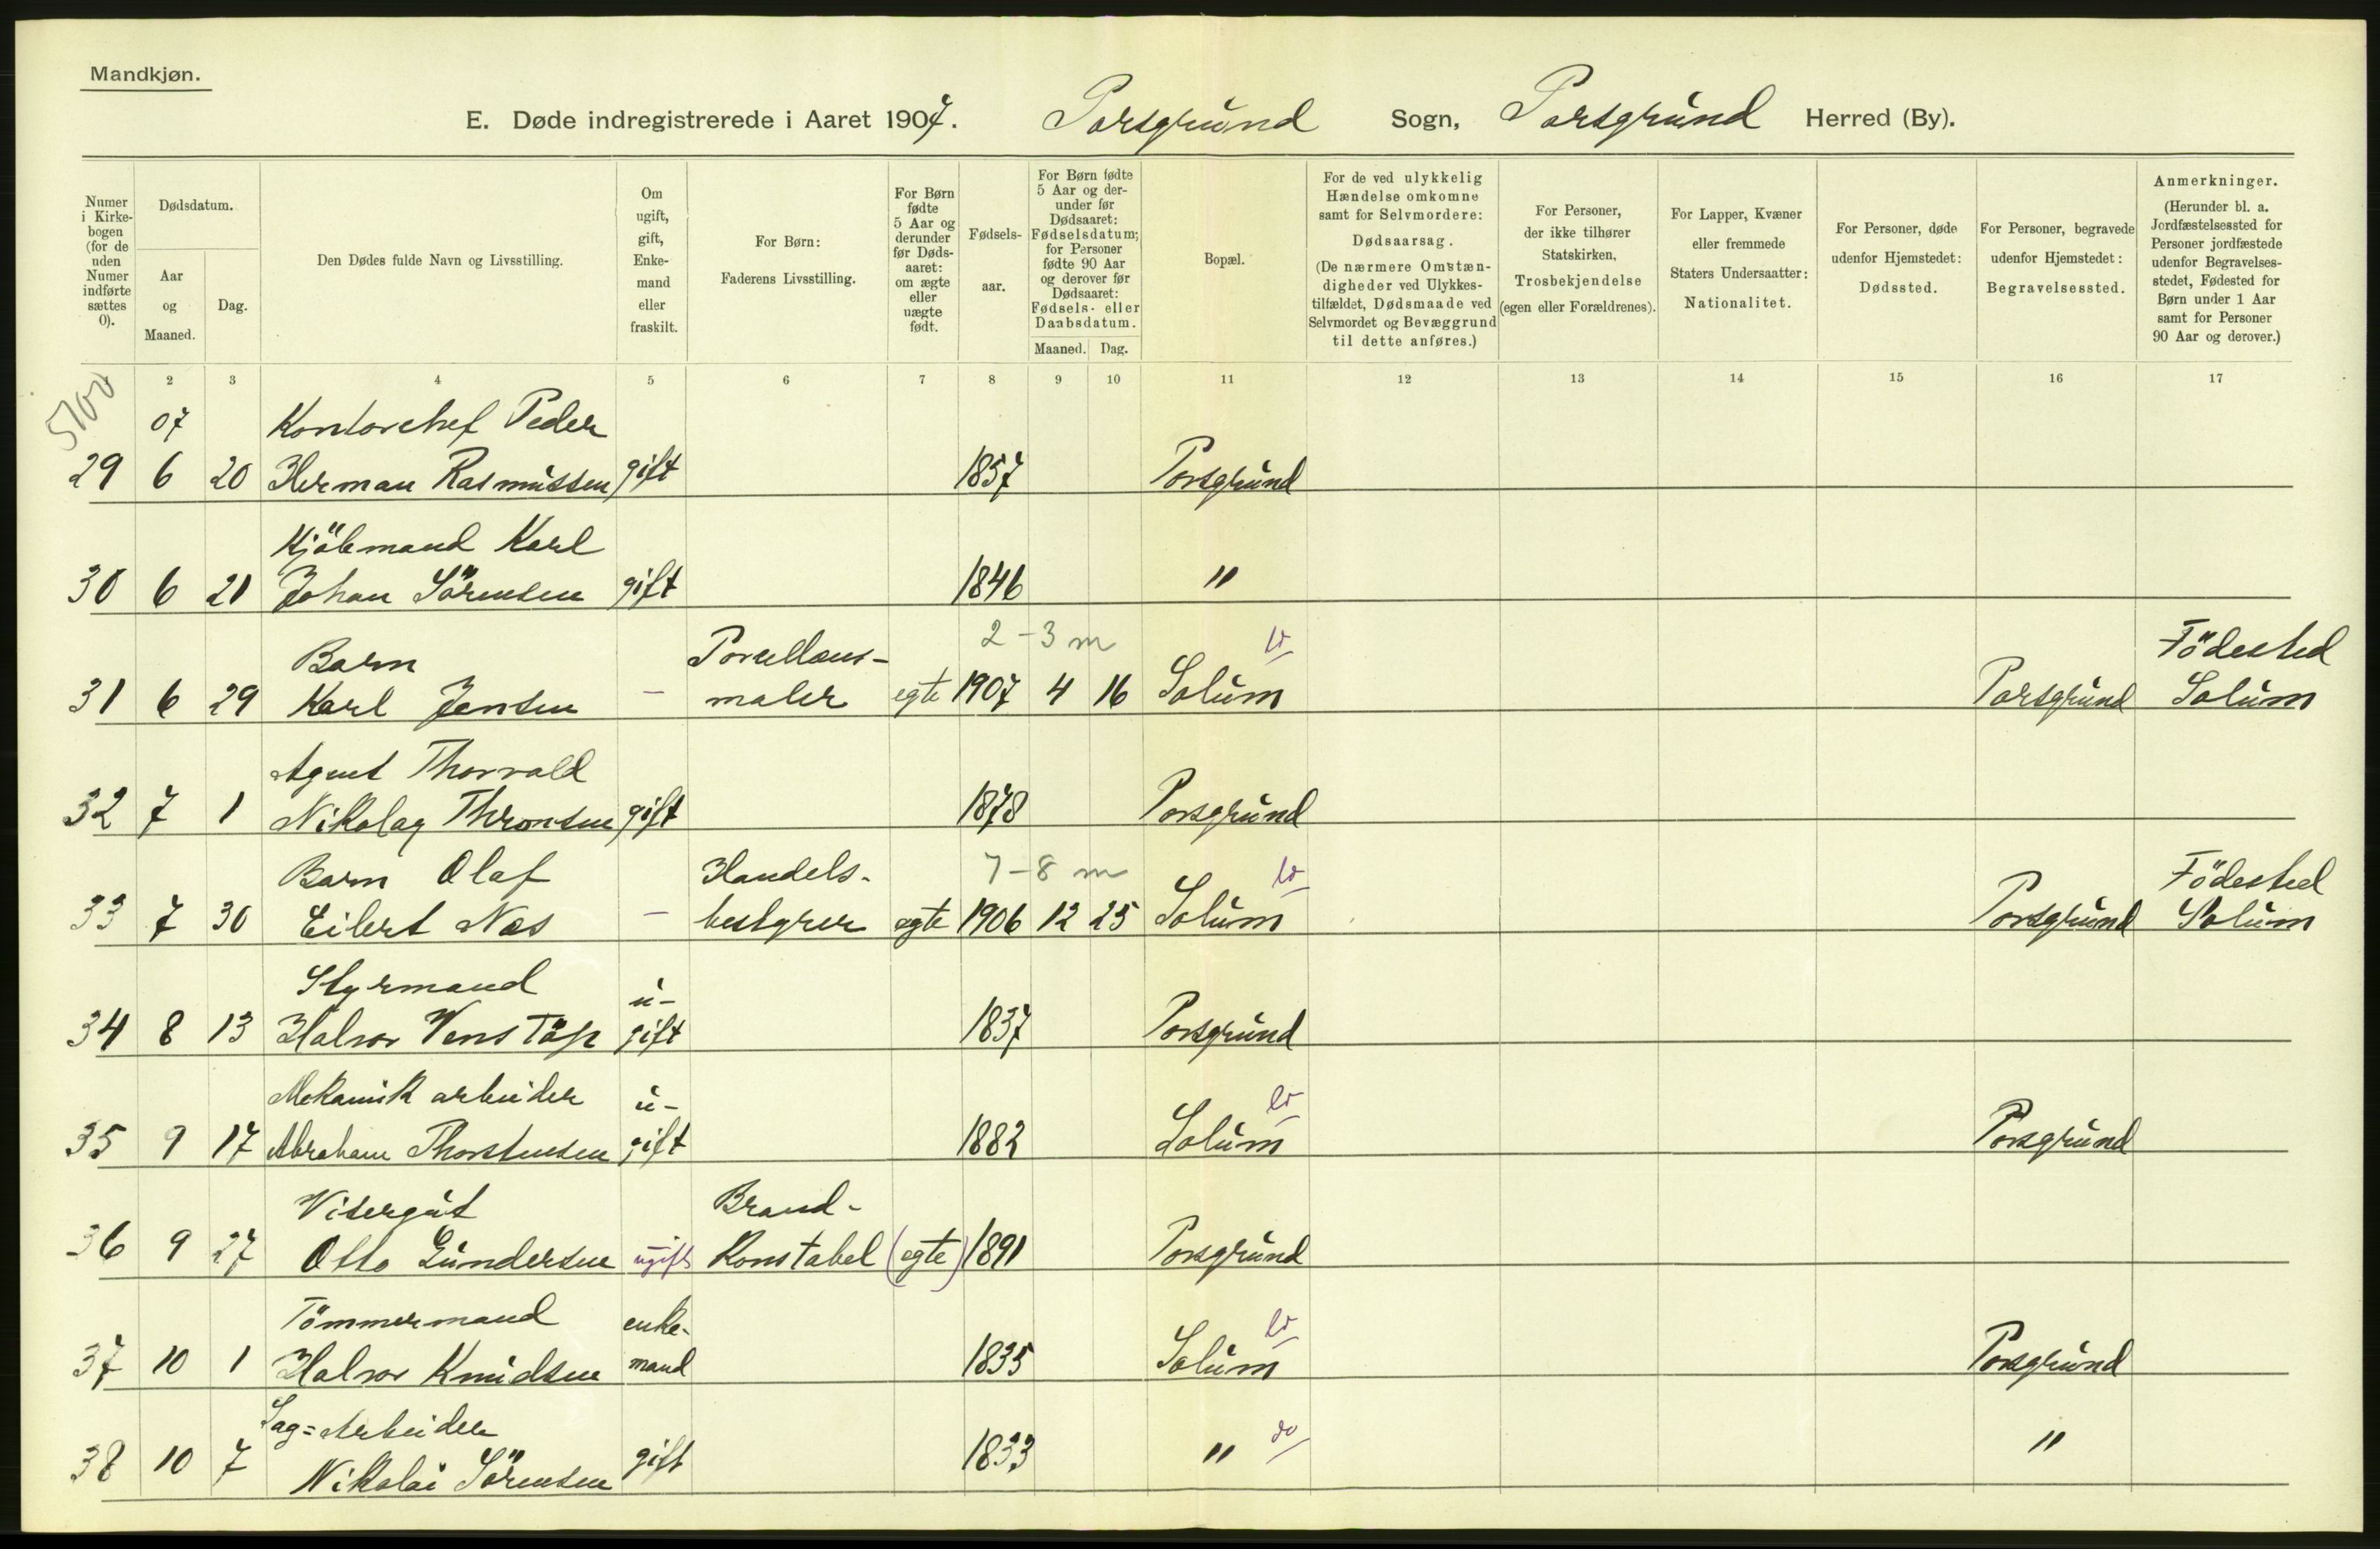 Mandkjøn.
E. Døde indregistrerede i Aaret 1907. Porsgrund Sogn, Porsgrund Herred (By).
Numer i Kirkebogen (for de uden Numer indførte sættes 0).
Dødsdatum.
Aar og Maaned.
Dag.
Den Dødes fulde Navn og Livsstilling.
Om ugift, gift, Enkemand eller fraskilt.
For Børn: Faderens Livsstilling.
For Børn fødte 5 Aar og derunder før Dødsaaret: om ægte eller uægte født.
Fødselsaar.
For Børn fødte 5 Aar og derunder før Dødsaaret: Fødselsdatum; for Personer fødte 90 Aar og derover før Dødsaaret: Fødsels- eller Daabsdatum.
Maaned. Dag.
Bopæl.
For de ved ulykkelig Hændelse omkomne samt for Selvmordere: Dødsaarsag. (De nærmere Omstændigheder ved Ulykkestilfældet, Dødsmaade ved Selvmordet og Bevæggrund til dette anføres.)
For Personer, der ikke tilhører Statskirken, Trosbekjendelse (egen eller Forældrenes).
For Lapper, Kvæner eller fremmede Staters Undersaatter: Nationalitet.
For Personer, døde udenfor Hjemstedet: Dødssted.
For Personer, begravede udenfor Hjemstedet: Begravelsessted.
Anmerkninger. (Herunder bl. a. Jordfæstelsessted for Personer jordfæstede udenfor Begravelsesstedet, Fødested for Børn under 1 Aar samt for Personer 90 Aar og derover.)
2 3 4 5 6 7 8 9 10 11 12 13 14 15 16 17
5700
07 Kontorchef Peder
29 6 20 Herman Rasmussen gift 1857 Porsgrund
Kjöbmand Karl
30 6 21 Johan Sörensen gift 1846 "
Barn Porcellans- 2-3 m Födested
31 6 29 Karl Jensen - maler egte 1907 4 16 Solum Porsgrund Solum
Agent Thorvald
32 7 1 Nikolay Thronsen gift 1878 Porsgrund
Barn Olaf Handels- 7-8 m Födested
33 7 30 Eilert Næs - bestyrer egte 1906 12 25 Solum Porsgrund Solum
Styrmand u-
34 8 13 Halvor Venstöp gift 1837 Porsgrund
Mekanisk arbeider u-
35 9 17 Abraham Thorstensen gift 1882 Solum Porsgrund
Visergut Brand-
36 9 27 Otto Gundersen ugift Konstabel (egte) 1891 Porsgrund
Tömmermand enke-
37 10 1 Halvor Knudsen mand 1835 Solum Porsgrund
Sag=Arbeider
38 10 7 Nikolai Sörensen gift 1833 " do "